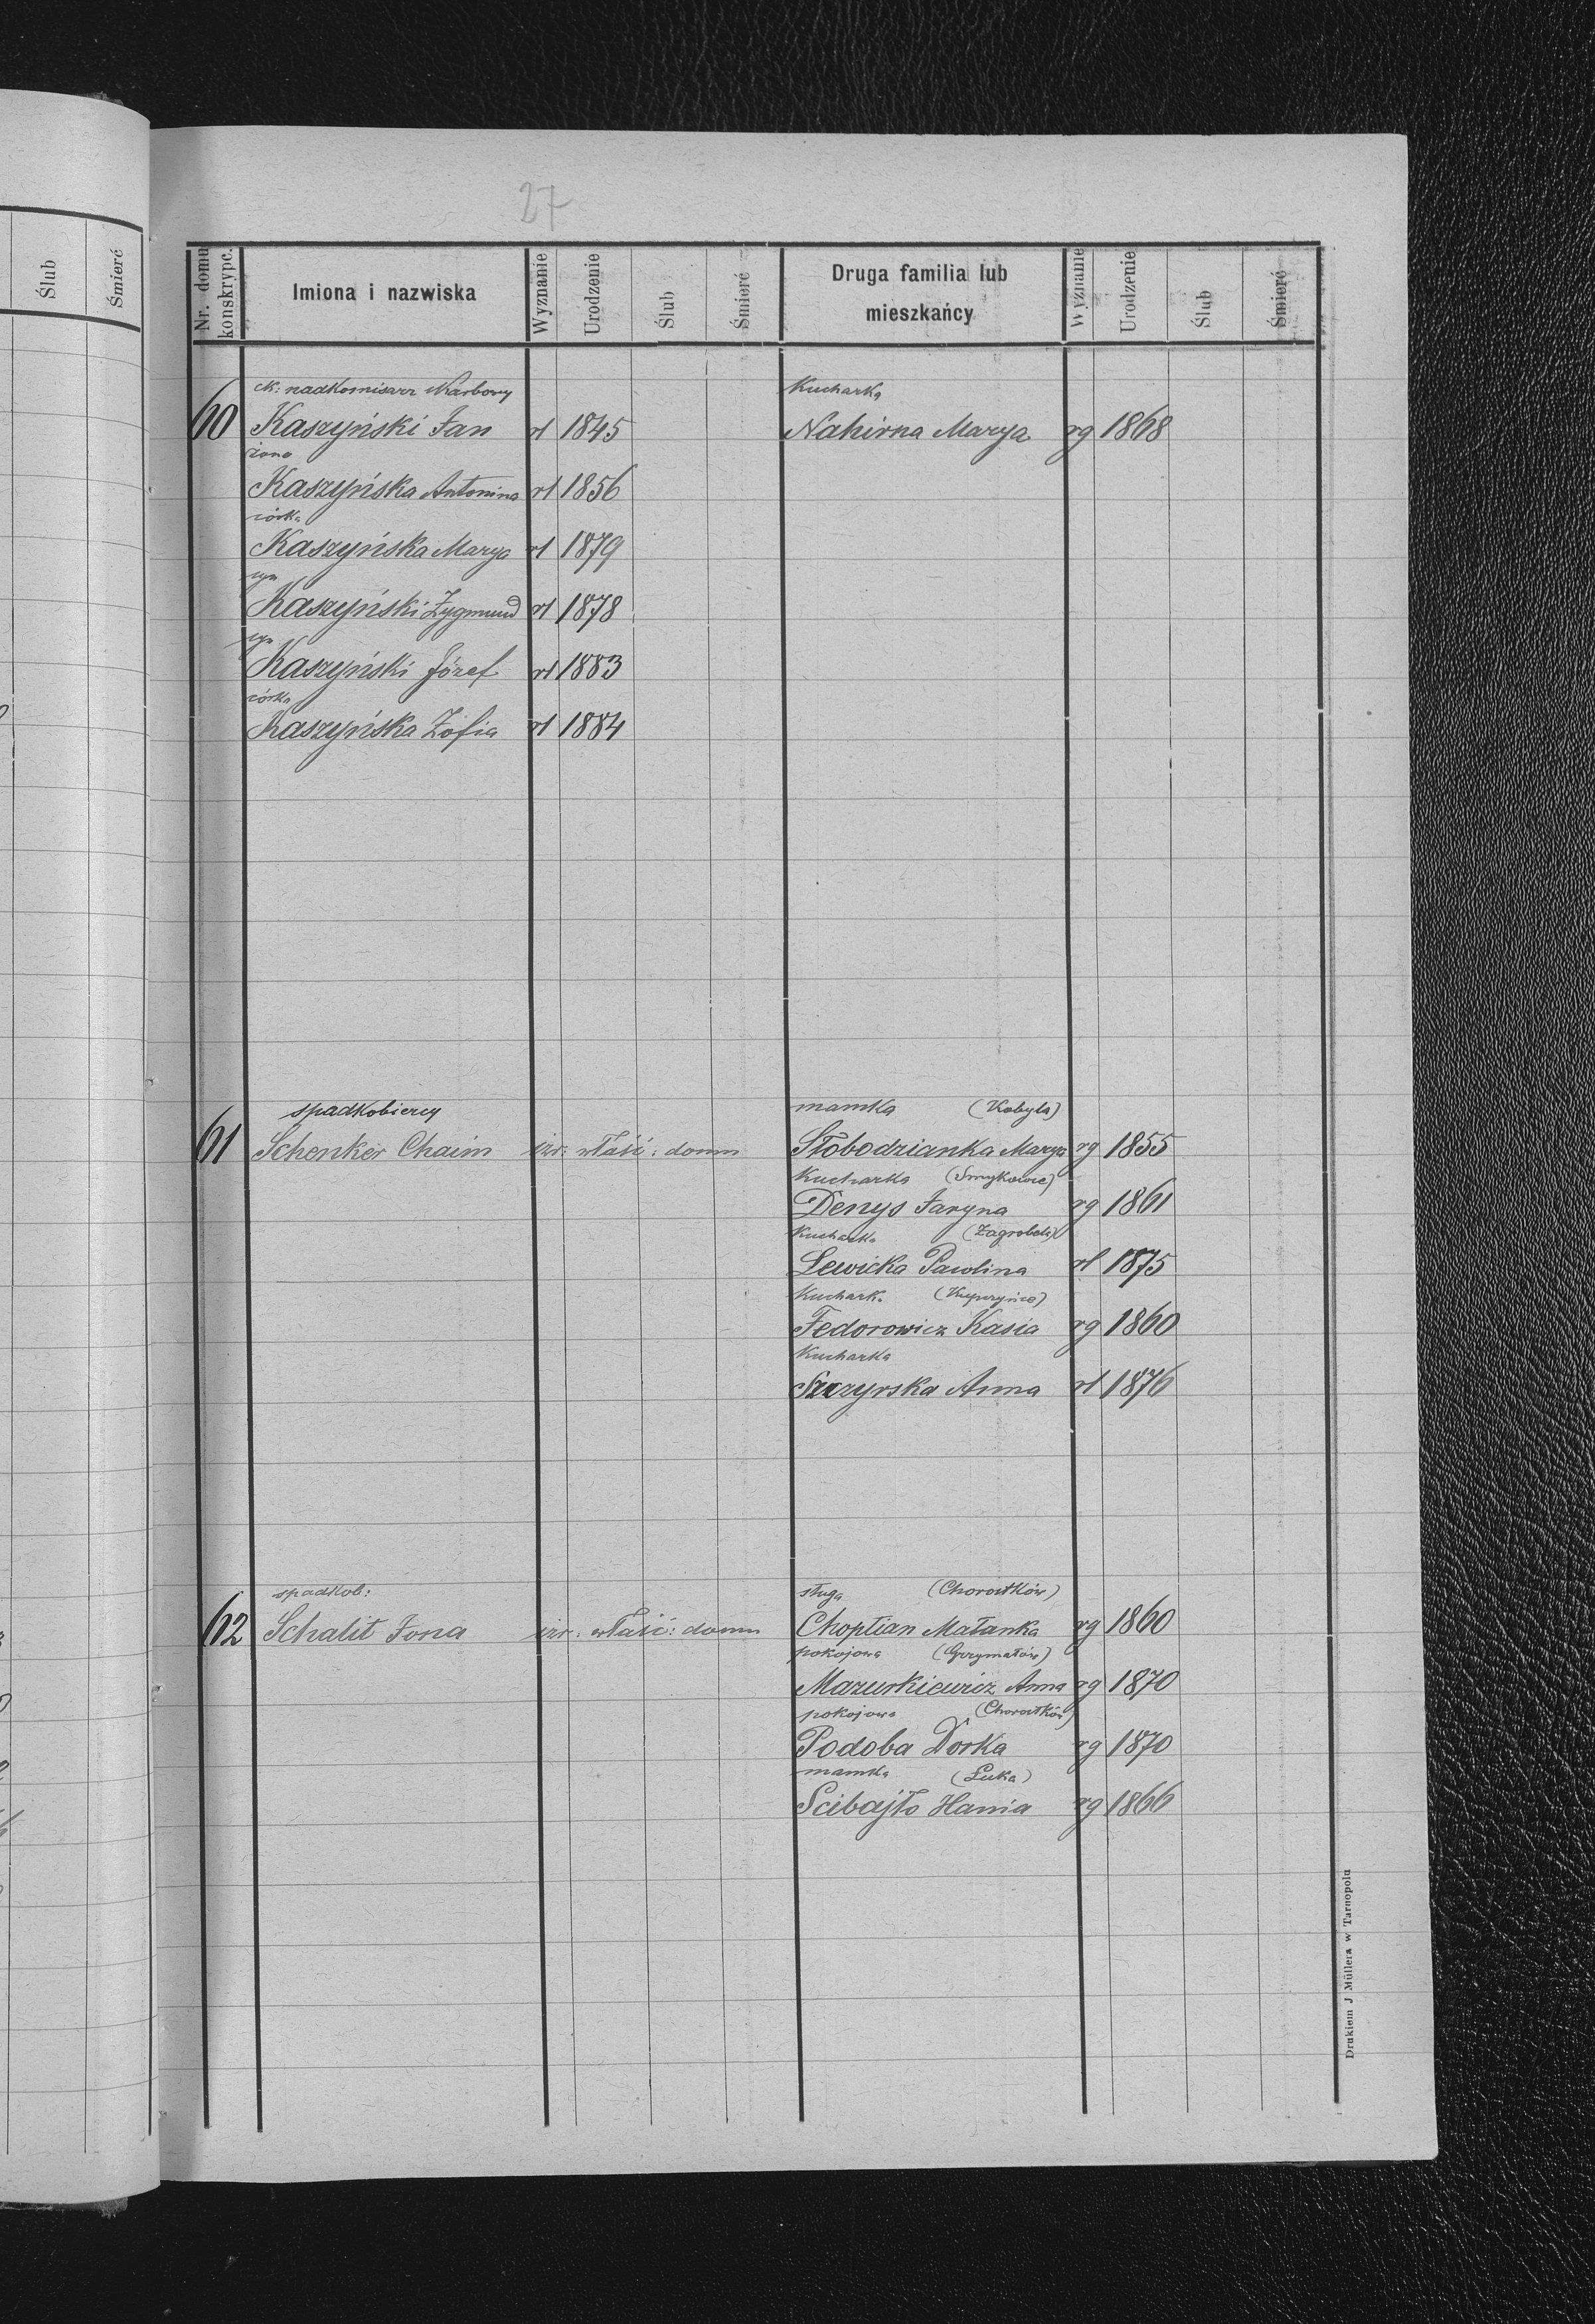 Ślub Śmierć
27
Nr. domu konskrypc. Imiona i nazwiska Wyznanie Urodzenie Ślub Śmierć Druga familia lub mieszkańcy Wyznanie Urodzenie Ślub Śmierć
ck: nadkomisarz skarbowy Kucharka
60 Kaszyński Jan rł 1845 Nahirna Marya rg 1868
żona
Kaszyńska Antonina rł 1856
córka
Kaszyńska Marya rł 1879
syn
Kaszyński Zygmund rł 1878
syn
Kaszyński Józef rł 1883
córka
Kaszyńska Zofia rł 1884
spadkobiercy mamka (Kobyla)
61 Schenker Chaim izr: właść: domu Słobodzianka Marya rg 1855
Kucharka (Smykowce)
Denys Jaryna rg 1861
Kucharka (Zagrobela)
Lewicka Paulina rł 1875
Kuchark. (Kupczyńce)
Fedorowicz Kasia rg 1860
Kucharka
Szczyrska Anna rł 1876
spadkob: sługa (Chorostków)
62 Schalit Jona izr: właść: domu Choptian Małanka rg 1860
pokojowa (Grzymałów)
Mazurkiewicz Anna rg 1870
pokojowa (Chorostków)
Podoba Dorka rg 1870
mamka (Łuka)
Scibajło Hania rg 1866
Drukiem J Müllera w Tarnopolu